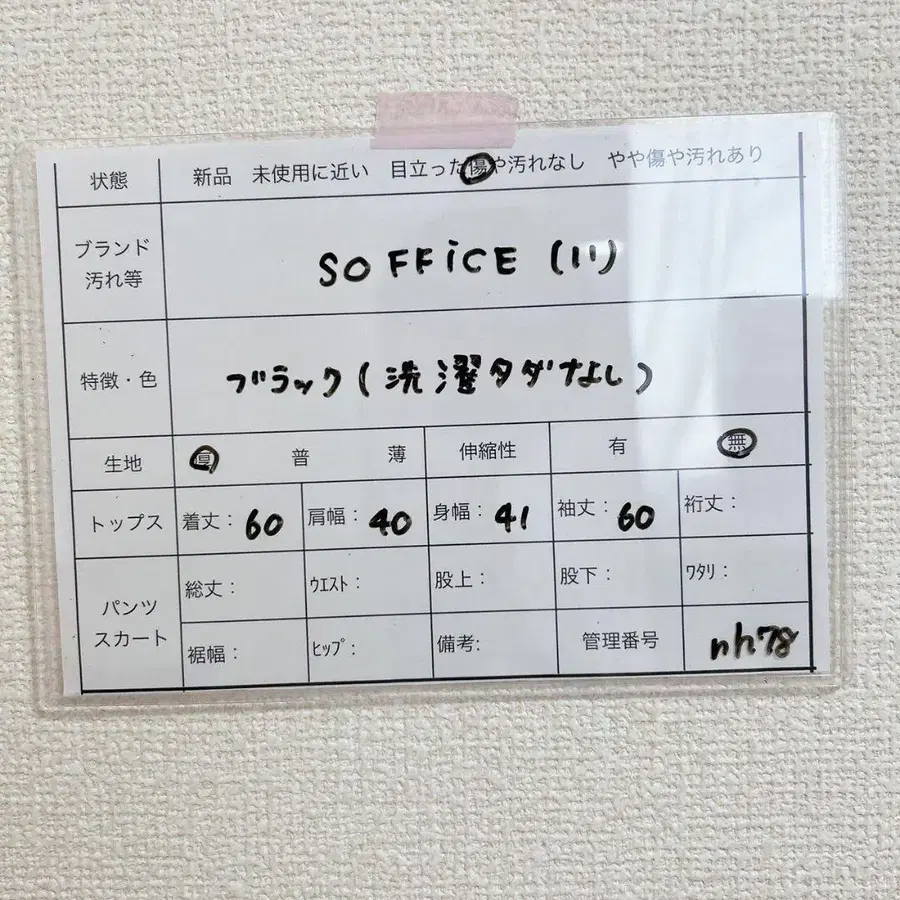 状態 新品 未使用に近い 目立った傷や汚れなし やや傷や汚れあり
ブランド
汚れ等
SOFFiCE (11)
特徴・色 ブラック(洗濯タグなし)
生地 厚 普 薄 伸縮性 有 無
トップス 着丈: 60 肩幅: 40 身幅: 41 袖丈: 60 裄丈:
パンツ
スカート
総丈: ウエスト: 股上: 股下: ワタリ:
裾幅: ヒップ: 備考: 管理番号 nh78